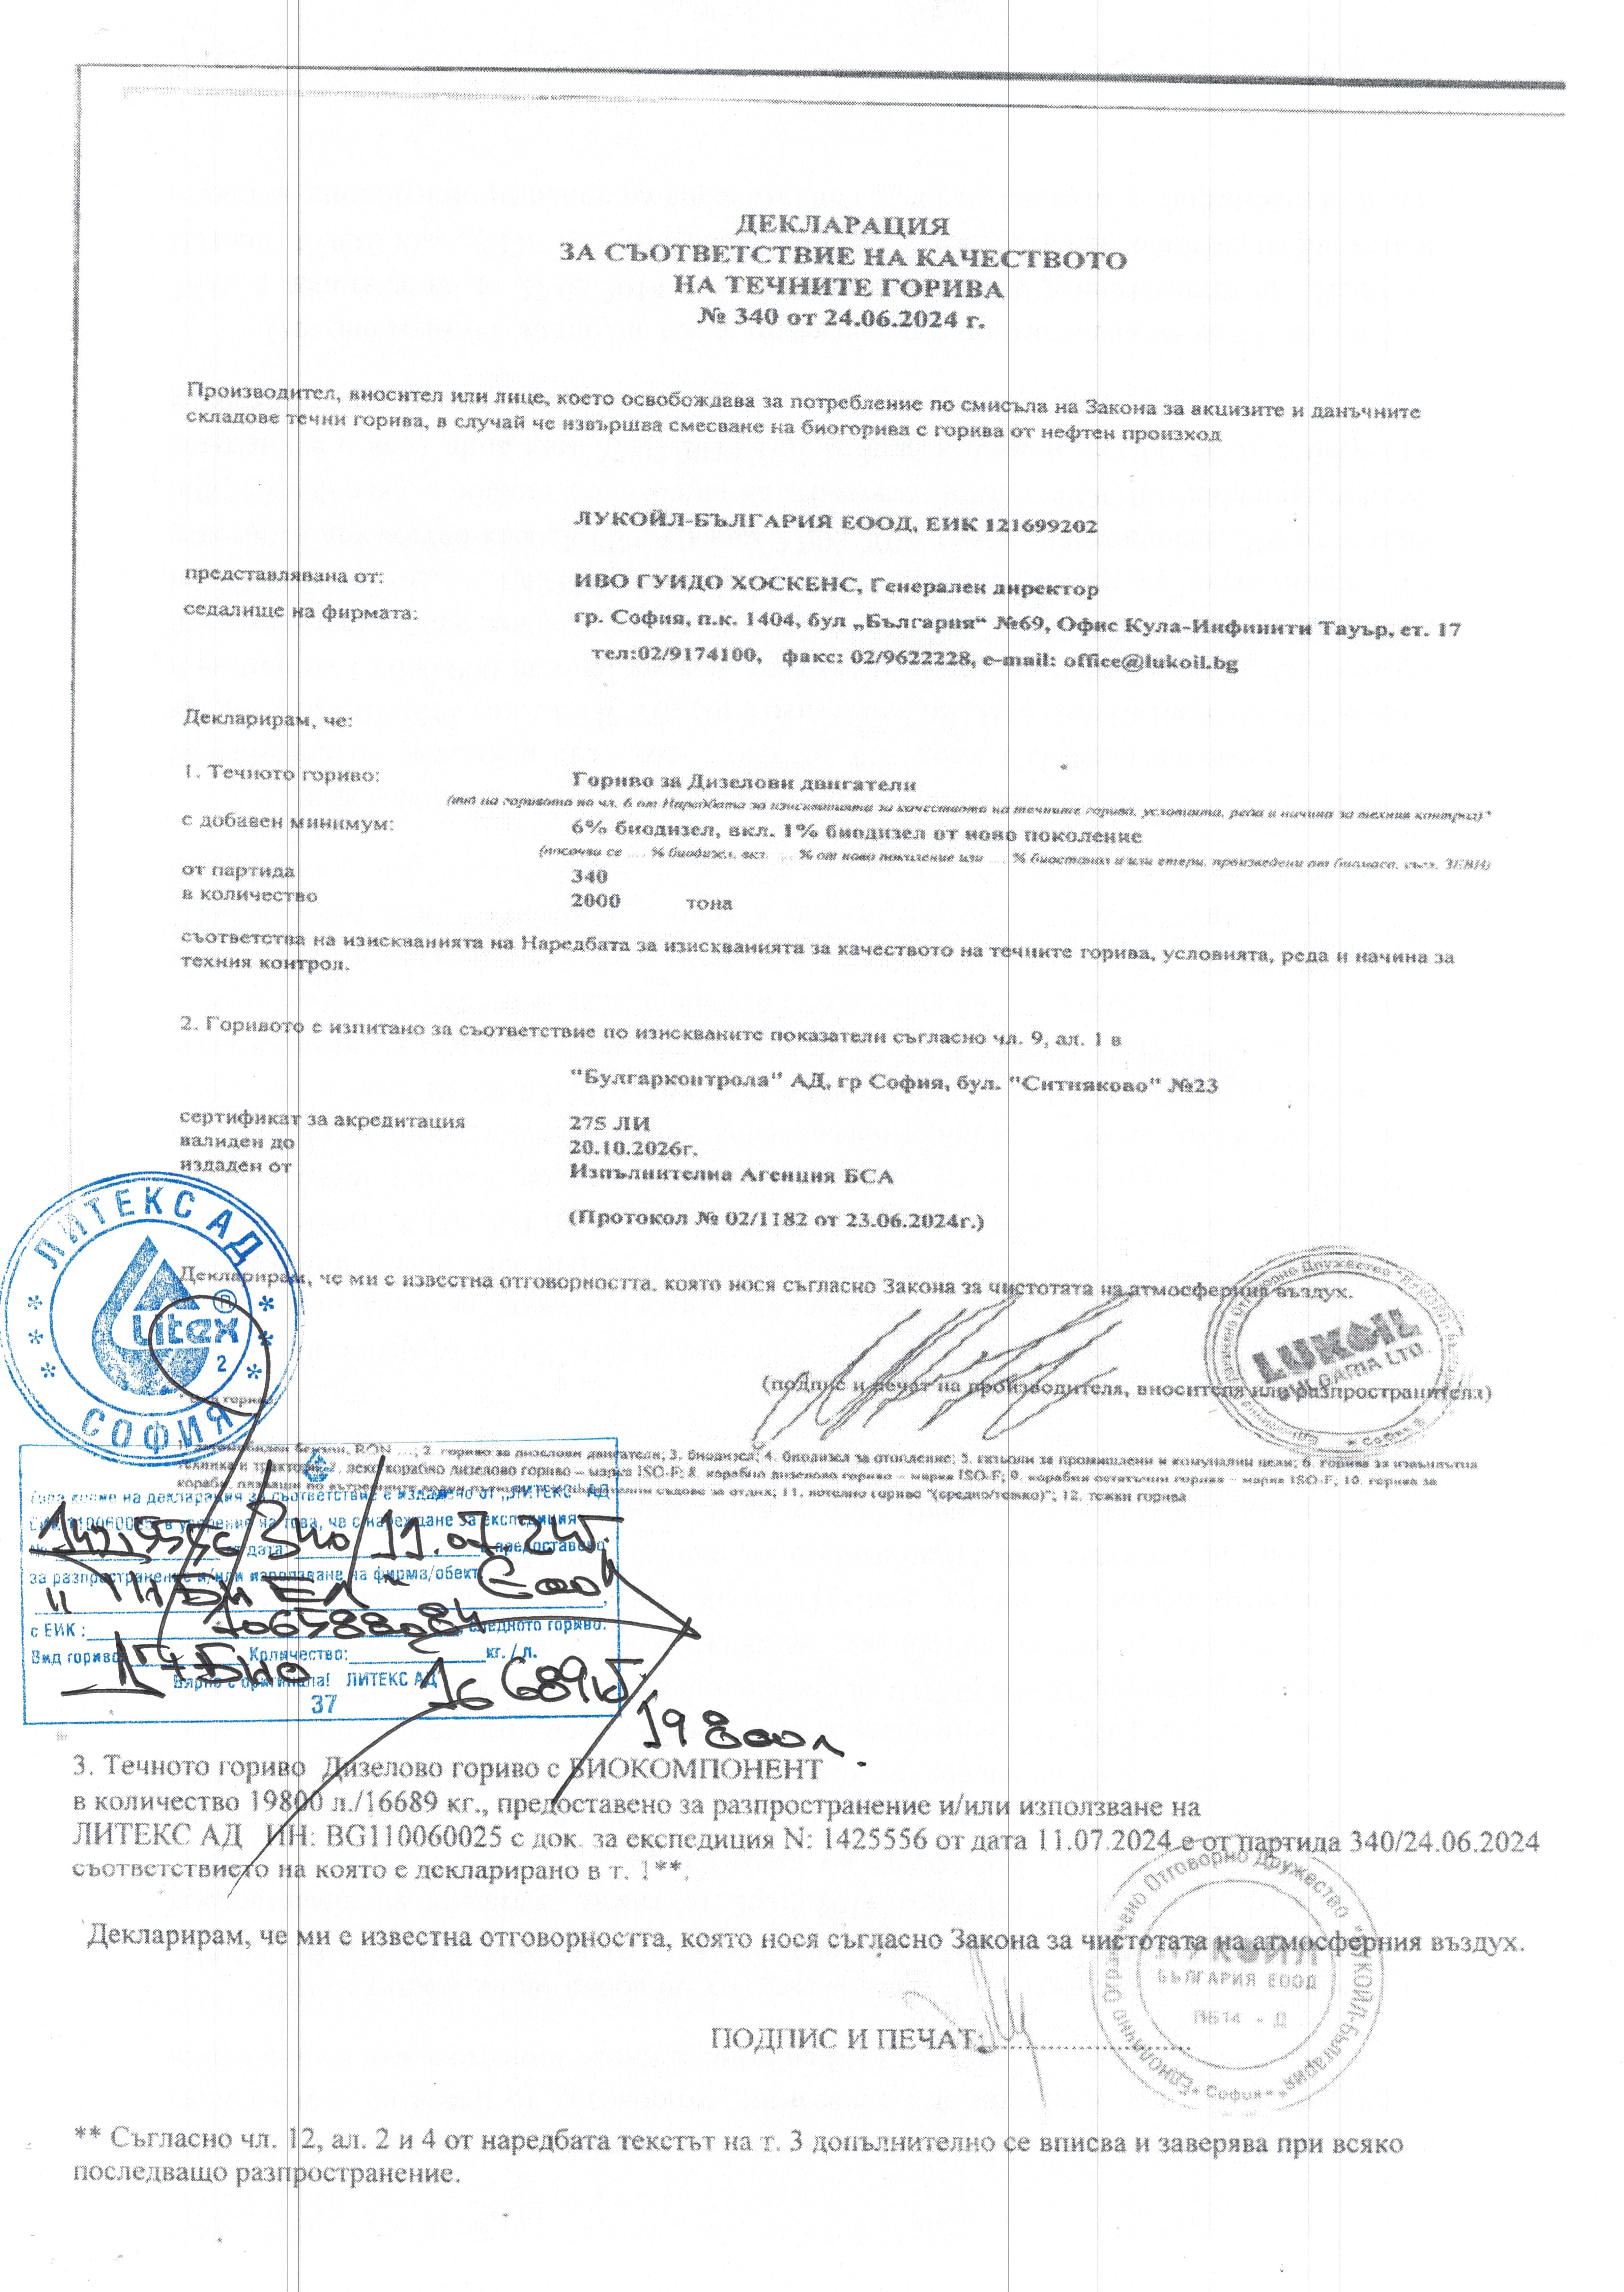 ДЕКЛАРАЦИЯ
ЗА СЪОТВЕТСТВИЕ НА КАЧЕСТВОТО
НА ТЕЧНИТЕ ГОРИВА
№ 340 от 24.06.2024 г.
Производител, вносител или лице, което освобождава за потребление по смисъла на Закона за акцизите и данъчните
складове течни горива, в случай че извършва смесване на биогорива с горива от нефтен произход
ЛУКОЙЛ-БЪЛГАРИЯ ЕООД, ЕИК 121699202
представлявана от: ИВО ГУИДО ХОСКЕНС, Генерален директор
седалище на фирмата: гр. София, п.к. 1404, бул „България“ №69, Офис Кула-Инфинити Тауър, ет. 17
тел:02/9174100, факс: 02/9622228, e-mail: office@lukoil.bg
Декларирам, че:
1. Течното гориво: Гориво за Дизелови двигатели
(вид на горивото по чл. 6 от Наредбата за изискванията за качеството на течните горива, условията, реда и начина за техния контрол)*
с добавен минимум: 6% биодизел, вкл. 1% биодизел от ново поколение
(посочва се .... % биодизел, вкл. ... % от ново поколение или .... % биоетанол и или етери, произведени от биомаса, съгл. ЗЕВИ)
от партида 340
в количество 2000 тона
съответства на изискванията на Наредбата за изискванията за качеството на течните горива, условията, реда и начина за
техния контрол.
2. Горивото е изпитано за съответствие по изискваните показатели съгласно чл. 9, ал. 1 в
"Булгарконтрола" АД, гр София, бул. "Ситняково" №23
сертификат за акредитация 275 ЛИ
валиден до 20.10.2026г.
издаден от Изпълнителна Агенция БСА
(Протокол № 02/1182 от 23.06.2024г.)
Декларирам, че ми е известна отговорността, която нося съгласно Закона за чистотата на атмосферния въздух.
ЛИТЕКС АД
Litex ®
2
СОФИЯ
LUKOIL
BULGARIA LTD.
(подпис и печат на производителя, вносителя или разпространителя)
автомобилен бензин, RON ...; 2. гориво за дизелови двигатели; 3. биодизел; 4. биодизел за отопление; 5. газьоли за промишлени и комунални цели; 6. горива за извънпътна
техника и трактори; 7. леко корабно дизелово гориво – марка ISO-F; 8. корабно дизелово гориво – марка ISO-F; 9. корабни остатъчни горива – марка ISO-F; 10. горива за
кораби, плаващи по вътрешните водни пътища и плавателни съдове за отдих; 11. котелно гориво "(средно/тежко)"; 12. тежки горива
Това копие на декларация за съответствие е издадено от „ЛИТЕКС" АД
ЕИК 110060025, в уверение на това, че с нареждане за експедиция
№ 1425556/340/11.07.24г. от дата: е предоставено
за разпространение и/или използване на фирма/обект
ЕООД
с ЕИК : 106588084 следното гориво:
Вид гориво Количество: кг. / л.
16 689 кг
Вярно с оригинала! ЛИТЕКС АД
37
19 800 л.
3. Течното гориво Дизелово гориво с БИОКОМПОНЕНТ
в количество 19800 л./16689 кг., предоставено за разпространение и/или използване на
ЛИТЕКС АД ИН: BG110060025 с док. за експедиция N: 1425556 от дата 11.07.2024 е от партида 340/24.06.2024
съответствието на която е декларирано в т. 1**.
Декларирам, че ми е известна отговорността, която нося съгласно Закона за чистотата на атмосферния въздух.
Еднолично Ограничено Отговорно Дружество "ЛУКОЙЛ-България" * София *
ЛУКОЙЛ
БЪЛГАРИЯ ЕООД
ПБ14 - Д
ПОДПИС И ПЕЧАТ:..............................
** Съгласно чл. 12, ал. 2 и 4 от наредбата текстът на т. 3 допълнително се вписва и заверява при всяко
последващо разпространение.